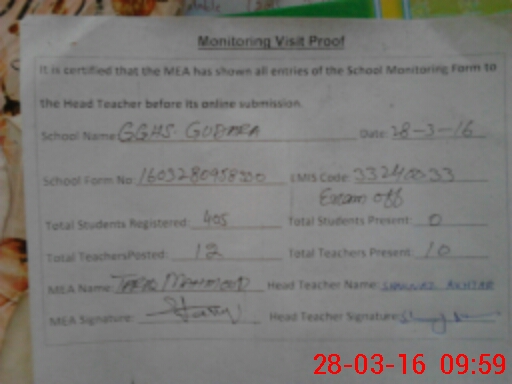 Monitoring Visit Proof
It is certified that the MEA has shown all entries of the School Monitoring Form to
the Head Teacher before its online submission.
School Name GGHS. GUBARA Date: 28-3-16
School Form No: EMIS Code: 33240033
Exam off
Total Students Registered: 405 Total Students Present: 0
Total TeachersPosted: 12 Total Teachers Present: 10
MEA Name: TARIQ MAHMOOD Head Teacher Name: SHAHNAZ AKHTAR
MEA Signature: Head Teacher Signature:
28-03-16 09:59